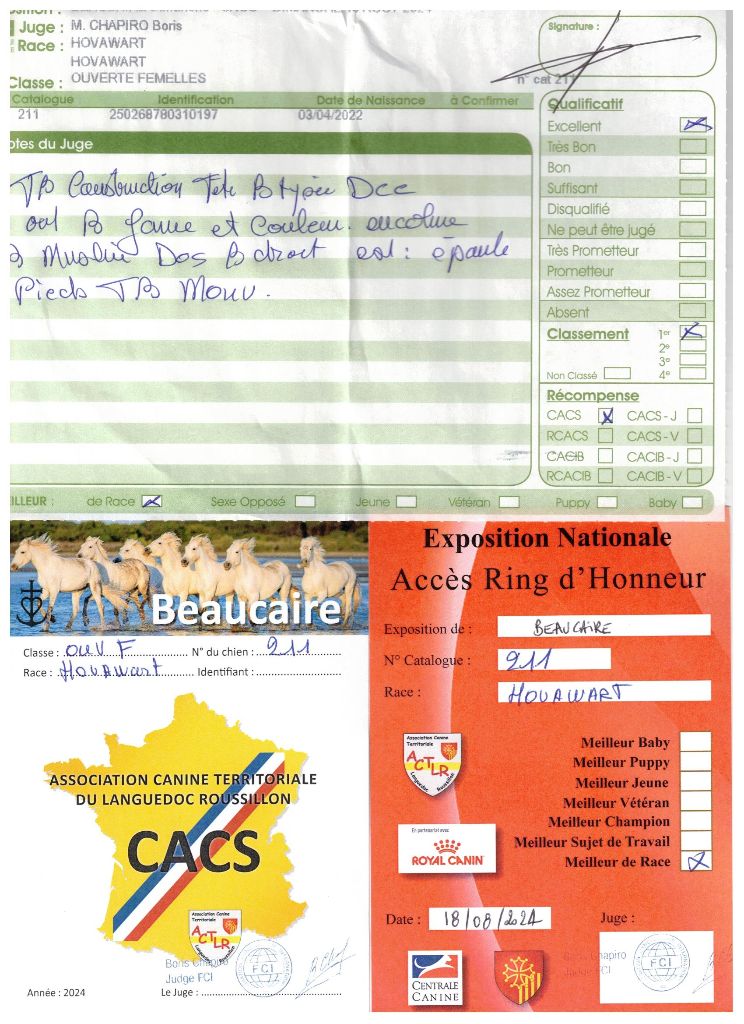 Juge : M. CHAPIRO Boris
Race : HOVAWART
HOVAWART
Classe : OUVERTE FEMELLES
Signature :
n° cat 211
Catalogue Identification Date de Naissance à Confirmer
211 250268780310197 03/04/2022
otes du Juge
TB Construction Tete B typée Dec
B forme et couleur. encolure
B Muslée Dos B droit est : épaule
Pieds TB Mouv.
Qualificatif
Excellent
Très Bon
Bon
Suffisant
Disqualifié
Ne peut être jugé
Très Prometteur
Prometteur
Assez Prometteur
Absent
Classement 1er
2e
3e
Non Classé 4e
Récompense
CACS CACS - J
RCACS CACS - V
CACIB CACIB - J
RCACIB CACIB - V
ILLEUR : de Race Sexe Opposé Jeune Vétéran Puppy Baby
Beaucaire
Classe : OUV F N° du chien : 211
Race : HOVAWART Identifiant :
ASSOCIATION CANINE TERRITORIALE
DU LANGUEDOC ROUSSILLON
CACS
Association Canine
Territoriale
ACTLR
Languedoc Roussillon
Boris Chapiro
Judge FCI
FCI
Année : 2024 Le Juge :
Exposition Nationale
Accès Ring d'Honneur
Exposition de : BEAUCAIRE
N° Catalogue : 211
Race : HOVAWART
Association Canine
Territoriale
ACTLR
Languedoc Roussillon
Meilleur Baby
Meilleur Puppy
Meilleur Jeune
Meilleur Vétéran
Meilleur Champion
Meilleur Sujet de Travail
Meilleur de Race
En partenariat avec
ROYAL CANIN
Date : 18/08/2024 Juge :
Boris Chapiro
Judge FCI
FCI
CENTRALE
CANINE